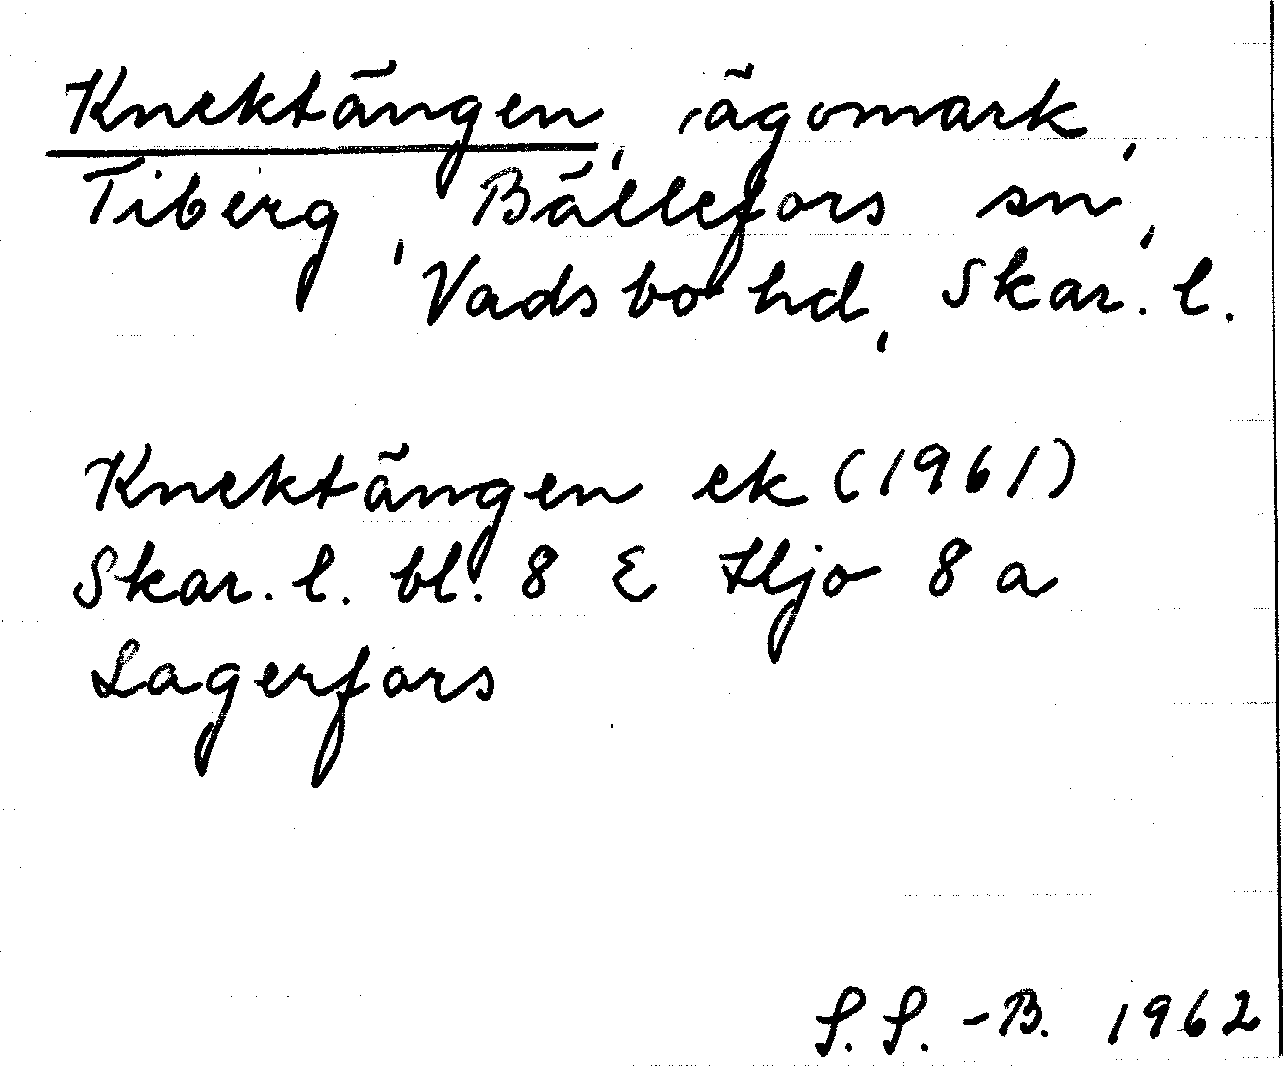 Knektängen, ägomark,
Tiberg, Bällefors sn,
Vadsbo hd, Skar. l.
Knektängen ek (1961)
Skar. l. bl. 8 E Hjo 8 a
Lagerfors
S. S. -B. 1962